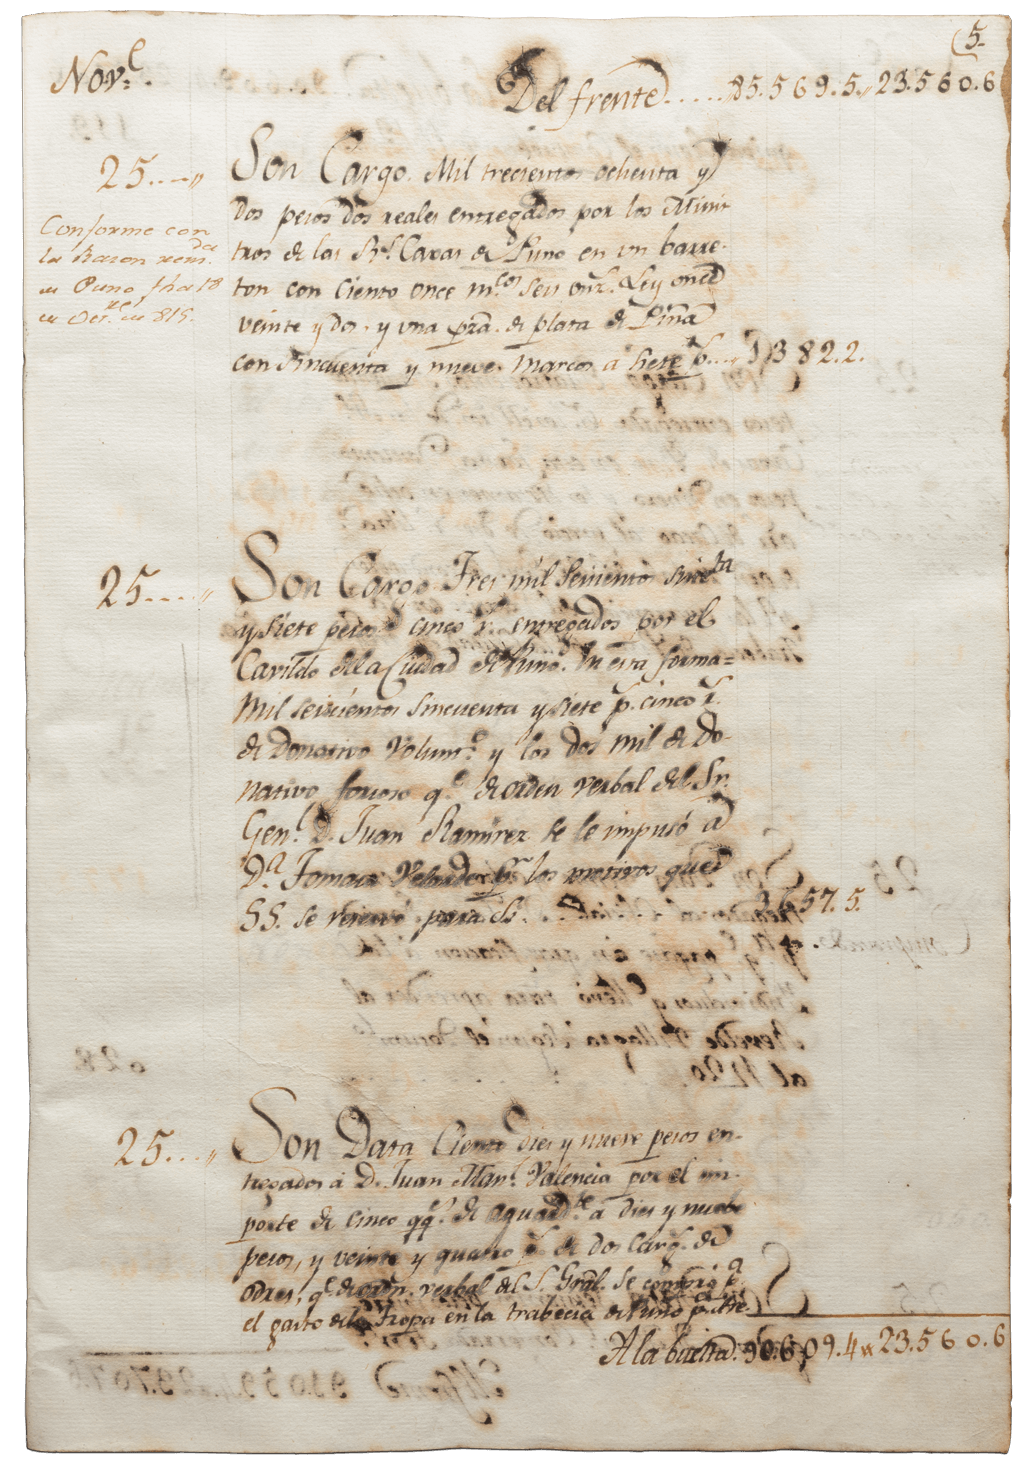 (5.
Nov.e
Del frente......85.569.5.,,23.560.6
25....,,
Son Cargo. Mil trecientos ochenta y
dos pesos dos reales entregados por los Minis
tros de las R.s Caxas de Puno en un barre-
ton con ciento once m.cos seis onz.s Ley once
veinte y dos. y una pza. de plata de Piña
con sincuenta y nueve. Marcos a siete p....,, 1,382.2.
Conforme con
la Razon remi.da
de Puno fha 18
de Oct.re de 815.
25....,,
Son Cargo Tres mil seiscientos sinc.ta
y siete pesos cinco r.s entregados por el
Cavildo de la Ciudad de Puno. En esta forma=
Mil seiscientos sincuenta y siete p.s cinco r.s
de Donativo Volunt.o y los dos mil de do-
nativo forsoso q.e de orden verbal del Sr.
Gen.l D. Juan Ramirez se le impusó a
D.a Tomasa los motivos que
SS. se reservó para si. 3.657.5.
25....,,
Son Data Ciento dies y nueve pesos en-
tregados á D. Juan Man.l Valencia por el im-
porte de cinco qq.s de aguard.te a dies y nuebe
pesos, y veinte y quatro p.s de dos carg.s de
odres, q.e de orn. verbal del S. Gral. se compró p.a
el gasto de la Tropa en la trabecia de Puno p.a
A la buelta. 90.609.4,,23.560.6